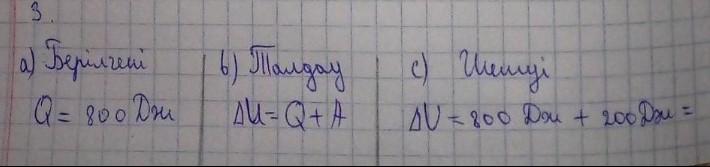 3.
a) Берілгені b) Талдау c) Шешуі
Q = 800 Дж ΔU = Q + A ΔU = 800 Дж + 200 Дж =